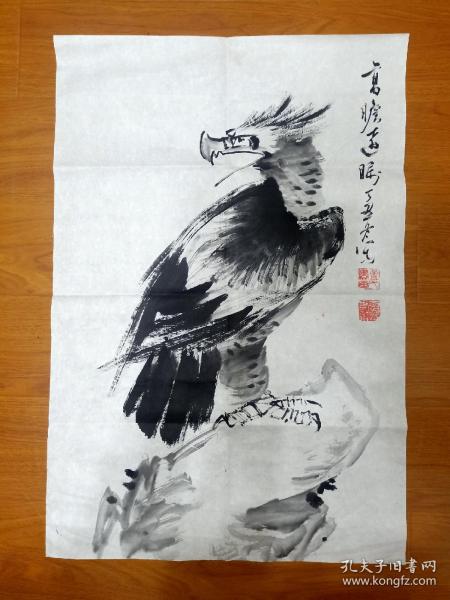 高瞻远瞩
丁丑
孔夫子旧书网
www.kongfz.com